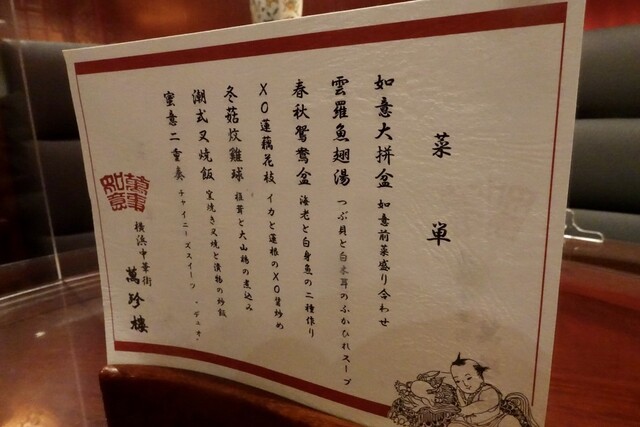 菜単
如意大拼盆 如意前菜盛り合わせ
雲羅魚翅湯 つぶ貝と白木耳のふかひれスープ
春秋鴛鴦盆 海老と白身魚の二種作り
XO蓮藕花枝 イカと蓮根のXO醤炒め
冬菇炆雞球 椎茸と大山鶏の煮込み
潮式叉焼飯 窯焼き叉焼と漬物の炒飯
蜜意二重奏 チャイニーズスイーツ・デュオ
萬事如意
横浜中華街
萬珍樓